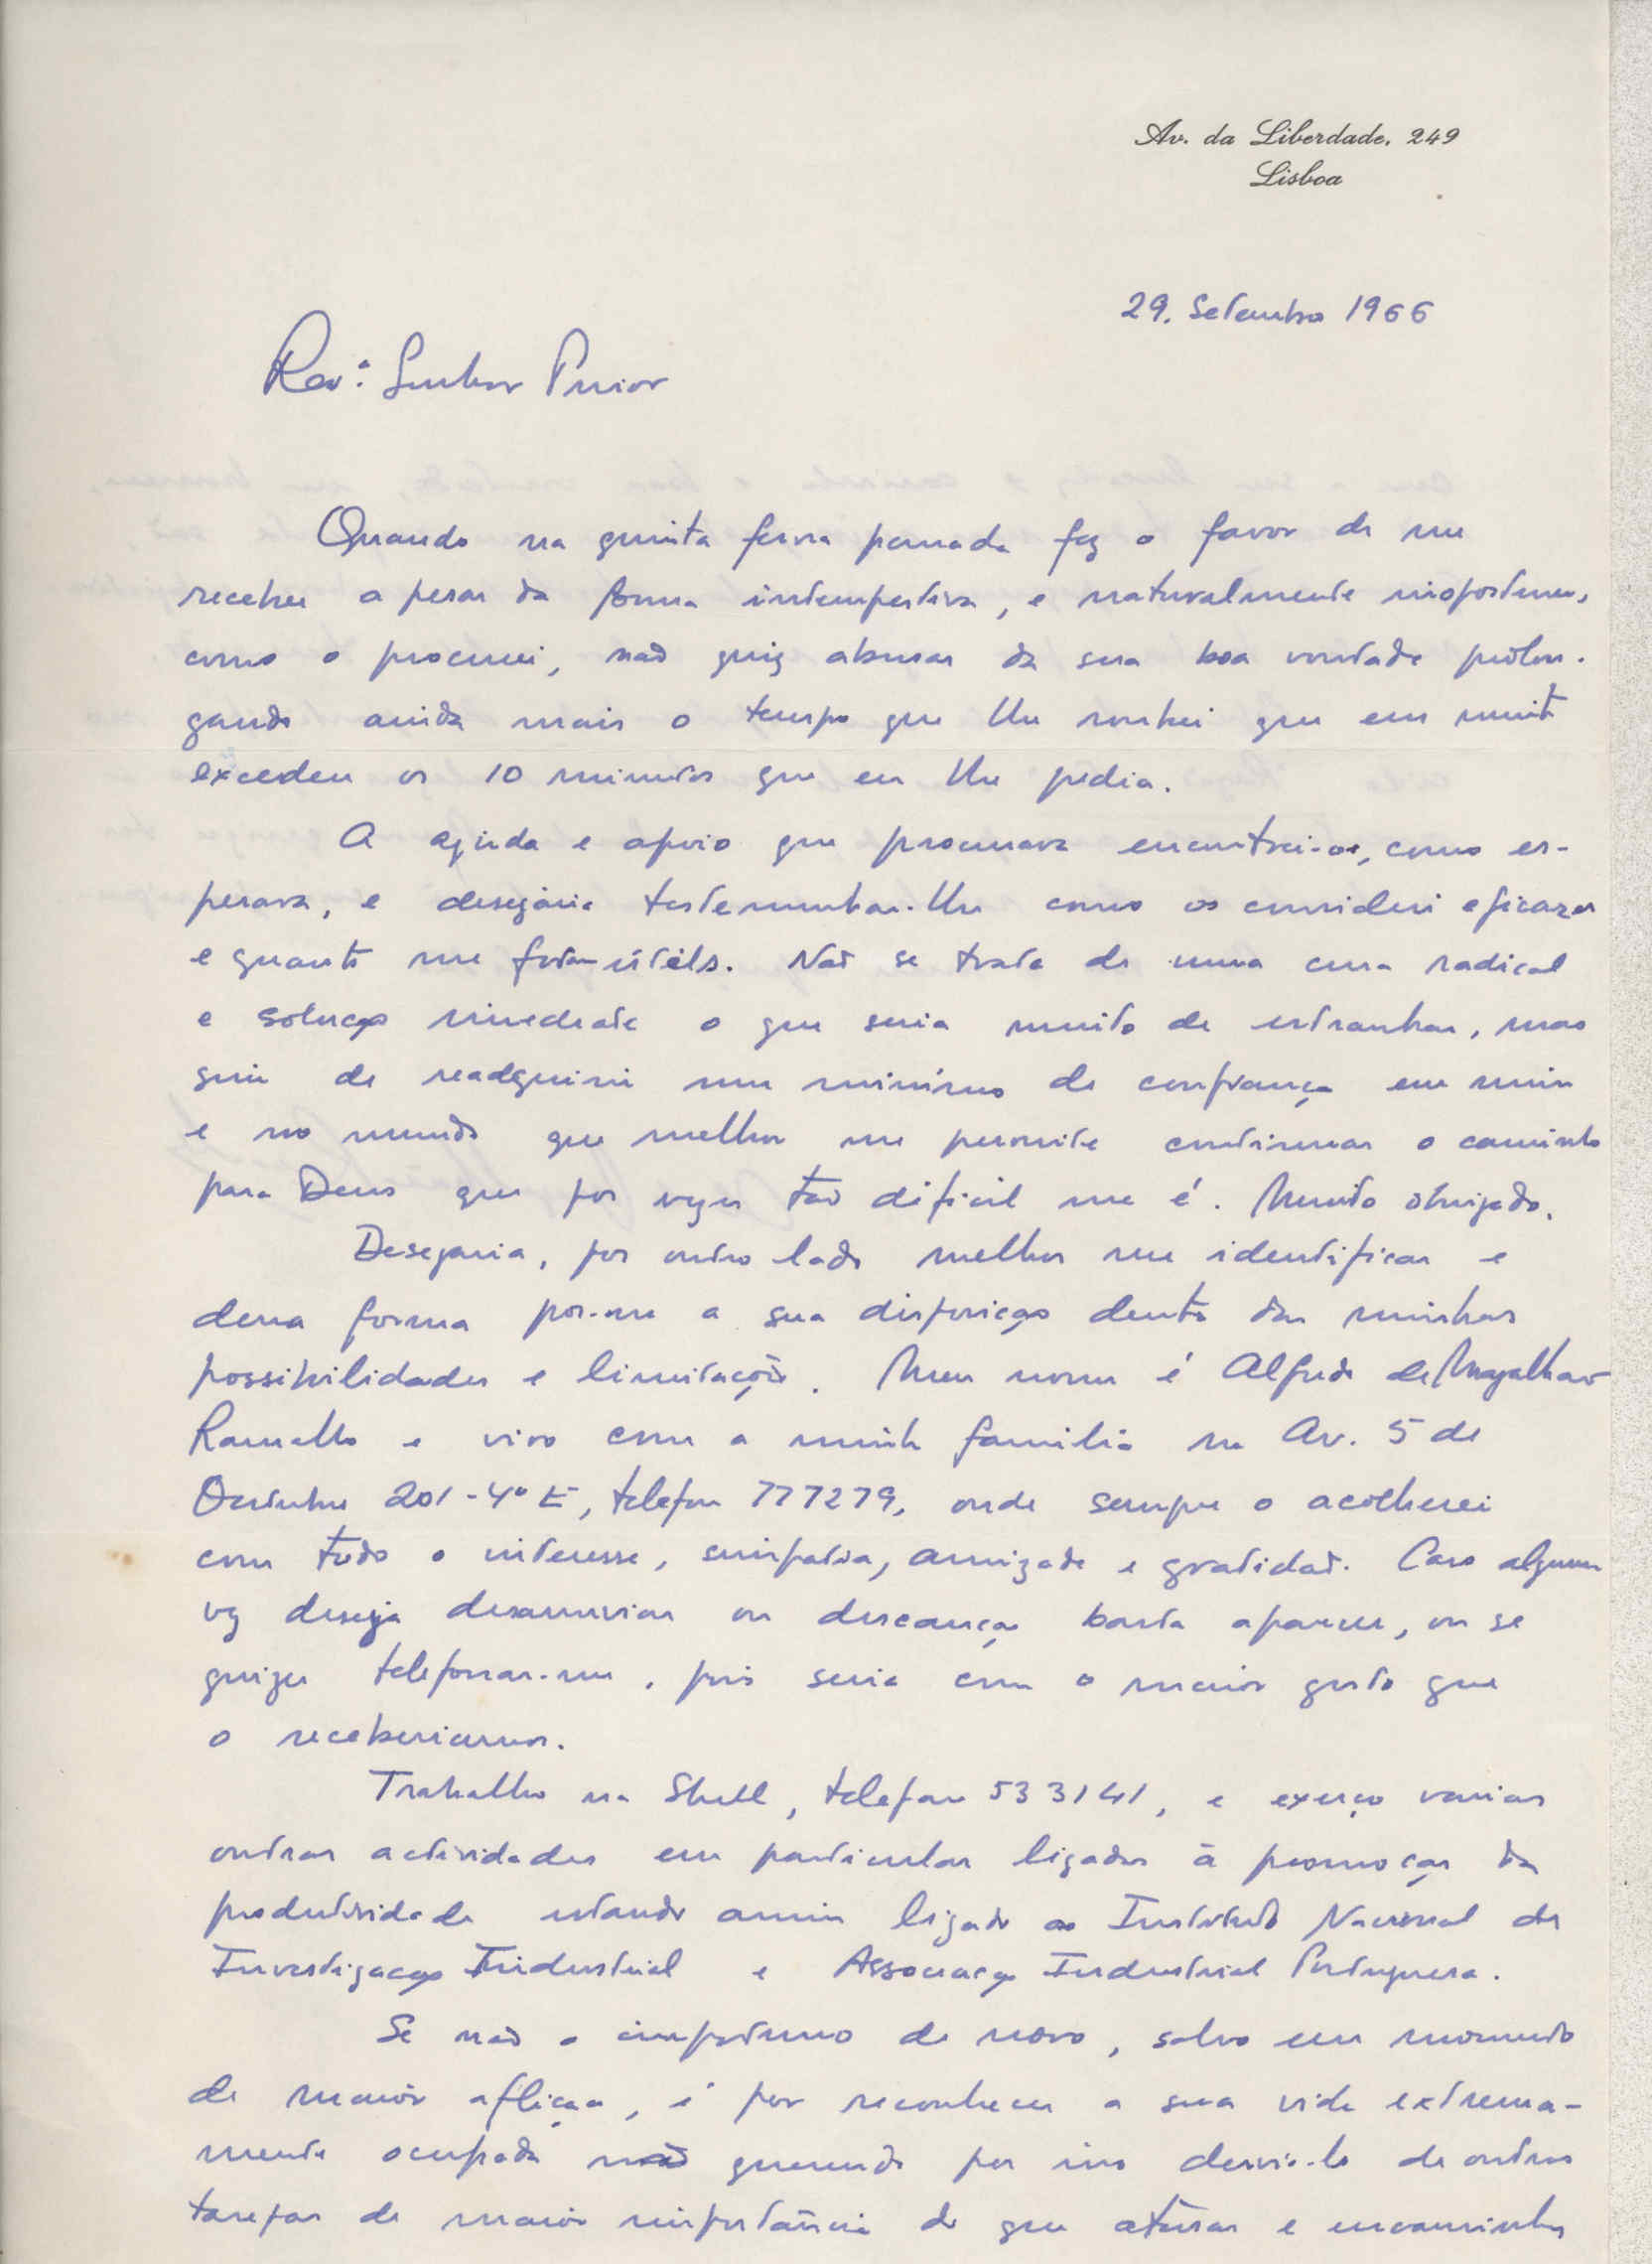 Av. da Liberdade, 249
Lisboa
29. Setembro 1966
Rev.º Senhor Prior
Quando na quinta feira passada fez o favor de me
receber a pesar da forma intempestiva, e naturalmente inoportuna,
como o procurei, não quiz abusar da sua boa vontade prolon-
gando ainda mais o tempo que lhe roubei que em muito
excedeu os 10 minutos que eu lhe pedia.
A ajuda e apoio que procurava encontrei-os, como es-
perava, e desejaria testemunhar-lhe como os considerei eficazes
e quanto me foram úteis. Não se trata de uma cura radical
e solução imediata o que seria muito de estranhar, mas
sim de readquirir um minimo de confiança em mim
e no mundo que melhor me permite continuar o caminho
para Deus que por vezes tão dificil me é. Muito obrigado.
Desejaria, por outro lado melhor me identificar e
dessa forma por-me a sua disposição dentro das minhas
possibilidades e limitações. Meu nome é Alfredo de Magalhães
Ramalho e vivo com a minha familia na Av. 5 de
Outubro 201-4º E, telefone 777279, onde sempre o acolherei
com todo o interesse, simpatia, amizade e gratidão. Caso alguma
vez deseje desanuviar ou descançar basta aparecer, ou se
quizer telefonar-me, pois seria com o maior gosto que
o receberiamos.
Trabalho na Shell, telefone 533141, e exerço varias
outras actividades em particular ligadas à promoção da
produtividade estando assim ligado ao Instituto Nacional de
Investigação Industrial e Associação Industrial Portuguesa.
Se não o importuno de novo, salvo em momento
de maior aflição, é por reconhecer a sua vida extrema-
mente ocupada não querendo por isso desviá-lo de outras
tarefas de maior importância do que aturar e encaminhar